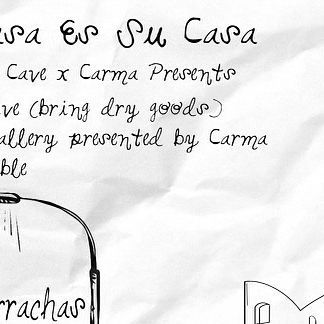 asa Es Su Casa
Cave x Carma Presents
ve (bring dry goods)
allery presented by Carma
ble
rrachas